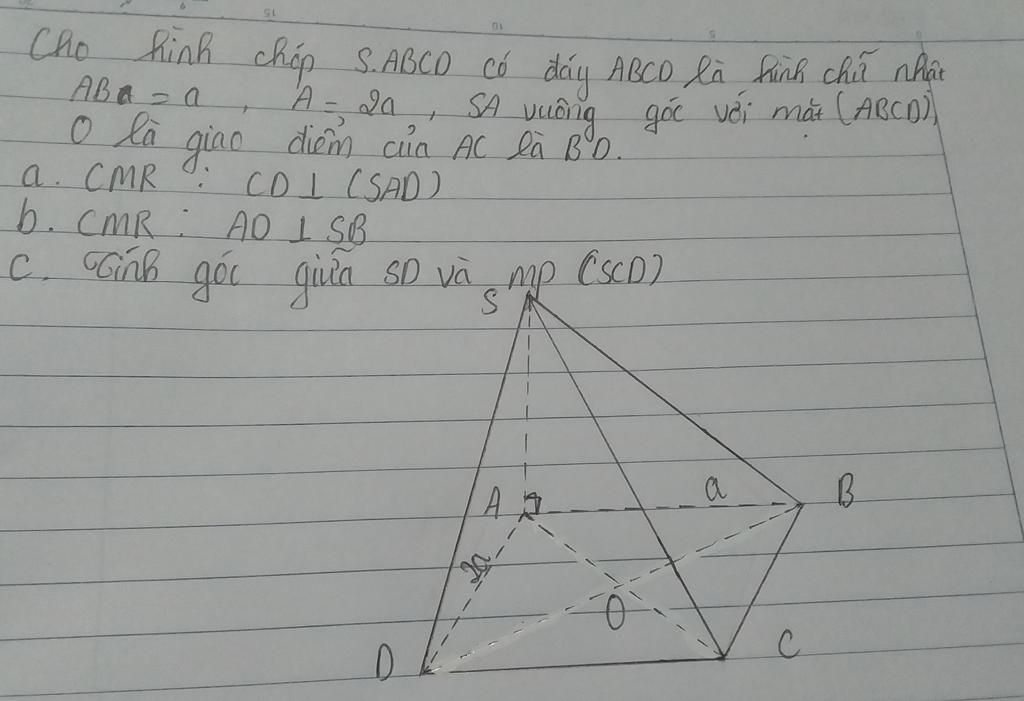 Cho hình chóp S.ABCD có đáy ABCD là hình chữ nhật
AB = a, A = 2a, SA vuông góc với mặt (ABCD)
O là giao điểm của AC là BD.
a. CMR : CD ⊥ (SAD)
b. CMR : AD ⊥ SB
c. Tính góc giữa SD và mp (SCD)
S
A a B
2a
O
D C